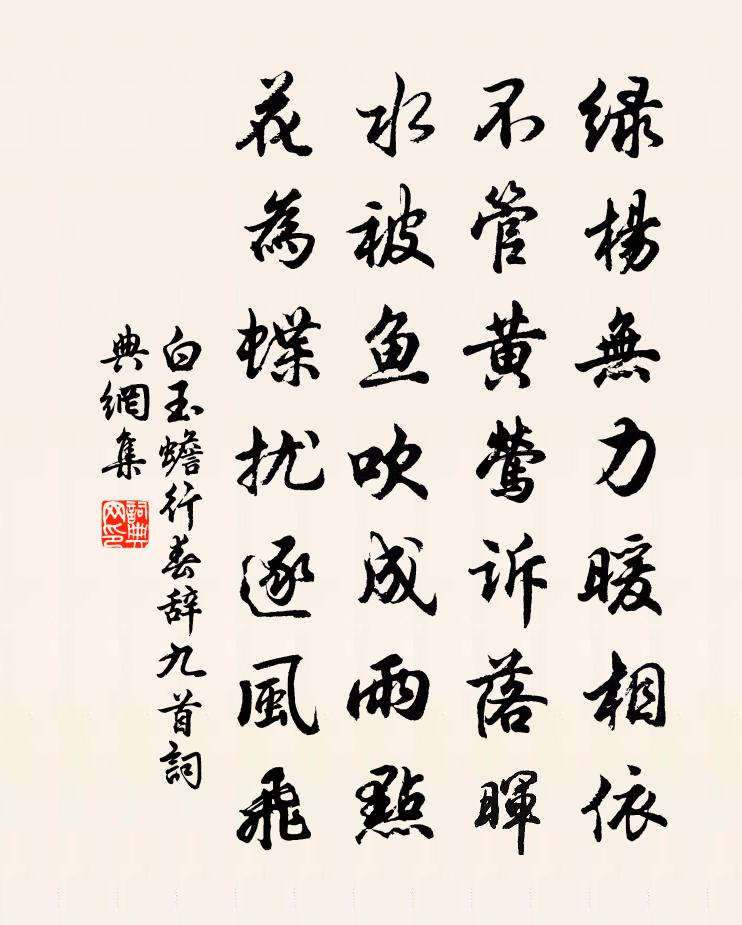 绿楊無力暖相依
不管黄鶯诉落暉
水被鱼吹成雨點
花為蝶扰逐風飛
白玉蟾行春辞九首詞
典網集
詞典
网印